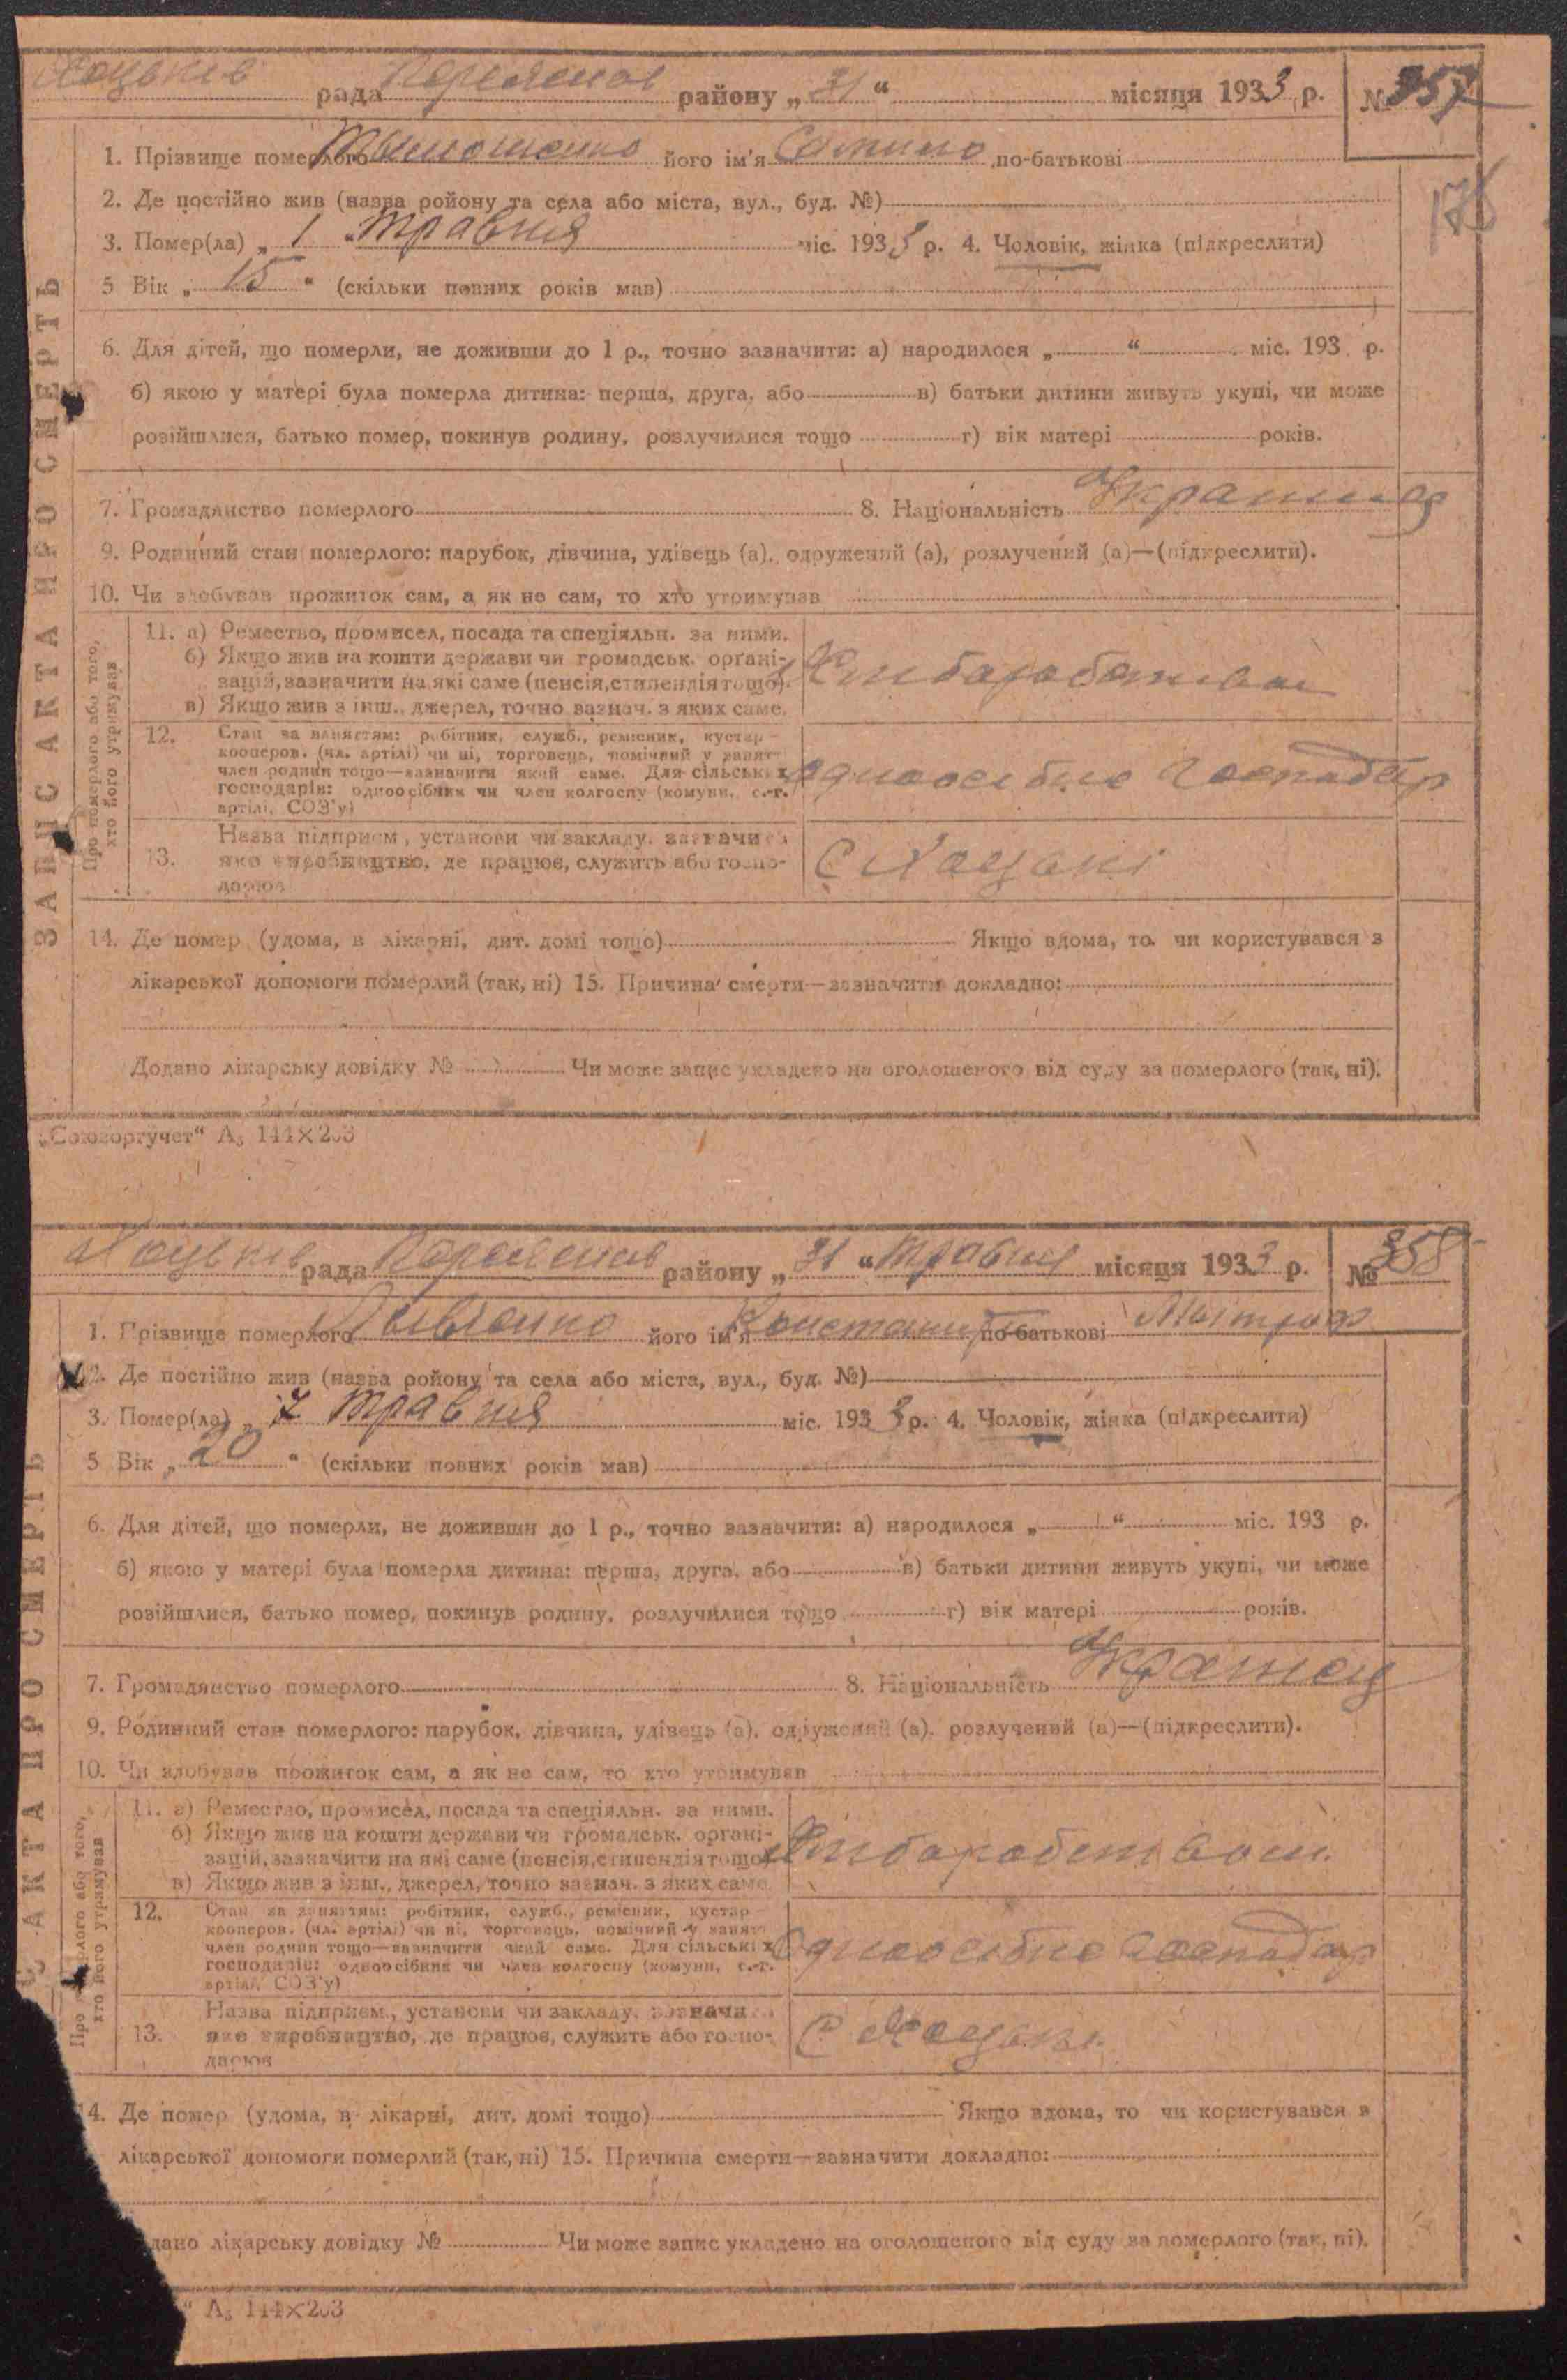 Хоцьків рада Переяслав району „ 31 “ місяця 1933 р. № 357
1. Прізвище померлого його ім'я по-батькові
176
2. Де постійно жив (назва ройону та села або міста, вул., буд. №)
3. Помер(ла) „ 1 “ травня міс. 1933 р. 4. Чоловік, жінка (підкреслити)
5 Вік „ 15 “ (скільки повних років мав)
6. Для дітей, що померли, не доживши до 1 р., точно зазначити: а) народилося „ “ міс. 193 р.
б) якою у матері була померла дитина: перша, друга, або в) батьки дитини живуть укупі, чи може
розійшлися, батько помер, покинув родину, розлучилися тощо г) вік матері років.
7. Громадянство померлого 8. Національність
9. Родинний стан померлого: парубок, дівчина, удівець (а), одружений (а), розлучений (а)—(підкреслити).
10. Чи здобував прожиток сам, а як не сам, то хто утримував
ЗАПИС АКТА ПРО СМЕРТЬ
Про померлого або того, хто його утримував
11. а) Ремество, промисел, посада та спеціяльн. за ними.
б) Якщо жив на кошти держави чи громадськ. органі-
зацій, зазначити на які саме (пенсія, стипендія тощо).
в) Якщо жив з інш. джерел, точно зазнач. з яких саме.
12. Стан за заняттям: робітник, служб., ремісник, кустар—
кооперов. (чл. артілі) чи ні, торговець, помічний у занят—
член родини тощо—зазначити який саме. Для сільських
господарів: одноосібник чи член колгоспу (комуни, с.-г.
артілі, СОЗ'у)
одноосібно господар
13. Назва підприєм., установи чи закладу, зазначи
яке виробництво, де працює, служить або госпо-
дарює
С Хоцьки
14. Де помер (удома, в лікарні, дит. домі тощо) Якщо вдома, то чи користувався з
лікарської допомоги померлий (так, ні) 15. Причина смерти—зазначити докладно:
Додано лікарську довідку № Чи може запис укладено на оголошеного від суду за померлого (так, ні).
„Союзоргучет“ А₅ 144×203
Хоцьків рада Переяслав району „ 31 “ травня місяця 1933 р. № 358
1. Прізвище померлого його ім'я по-батькові
2. Де постійно жив (назва ройону та села або міста, вул., буд. №)
3. Помер(ла) „ 7 травня міс. 1933 р. 4. Чоловік, жінка (підкреслити)
5 Вік „ 20 “ (скільки повних років мав)
6. Для дітей, що померли, не доживши до 1 р., точно зазначити: а) народилося „ “ міс. 193 р.
б) якою у матері була померла дитина: перша, друга, або в) батьки дитини живуть укупі, чи може
розійшлися, батько помер, покинув родину, розлучилися тощо г) вік матері років.
7. Громадянство померлого 8. Національність
9. Родинний стан померлого: парубок, дівчина, удівець (а), одружений (а), розлучений (а)—(підкреслити).
10. Чи здобував прожиток сам, а як не сам, то хто утримував
АКТА ПРО СМЕРТЬ
Про або того, хто його утримував
11. а) Ремество, промисел, посада та спеціяльн. за ними.
б) Якщо жив на кошти держави чи громадськ. органі-
зацій, зазначити на які саме (пенсія, стипендія тощо)
в) Якщо жив з інш., джерел, точно зазнач. з яких саме.
12. Стан за заняттям: робітник, служб., ремісник, кустар—
кооперов. (чл. артілі) чи ні, торговець, помічний у занят
член родини тощо—зазначити який саме. Для сільських
господарів: одноосібник чи член колгоспу (комуни, с.-г.
артілі, СОЗ'у)
Одноосібно господар
13. Назва підприєм., установи чи закладу, зазначи
яке виробництво, де працює, служить або госпо-
дарює
С Хоцьки
14. Де помер (удома, в лікарні, дит. домі тощо) Якщо вдома, то чи користувався з
лікарської допомоги померлий (так, ні) 15. Причина смерти—зазначити докладно:
дано лікарську довідку № Чи може запис укладено на оголошеного від суду за померлого (так, ні).
“ А₅ 144×203